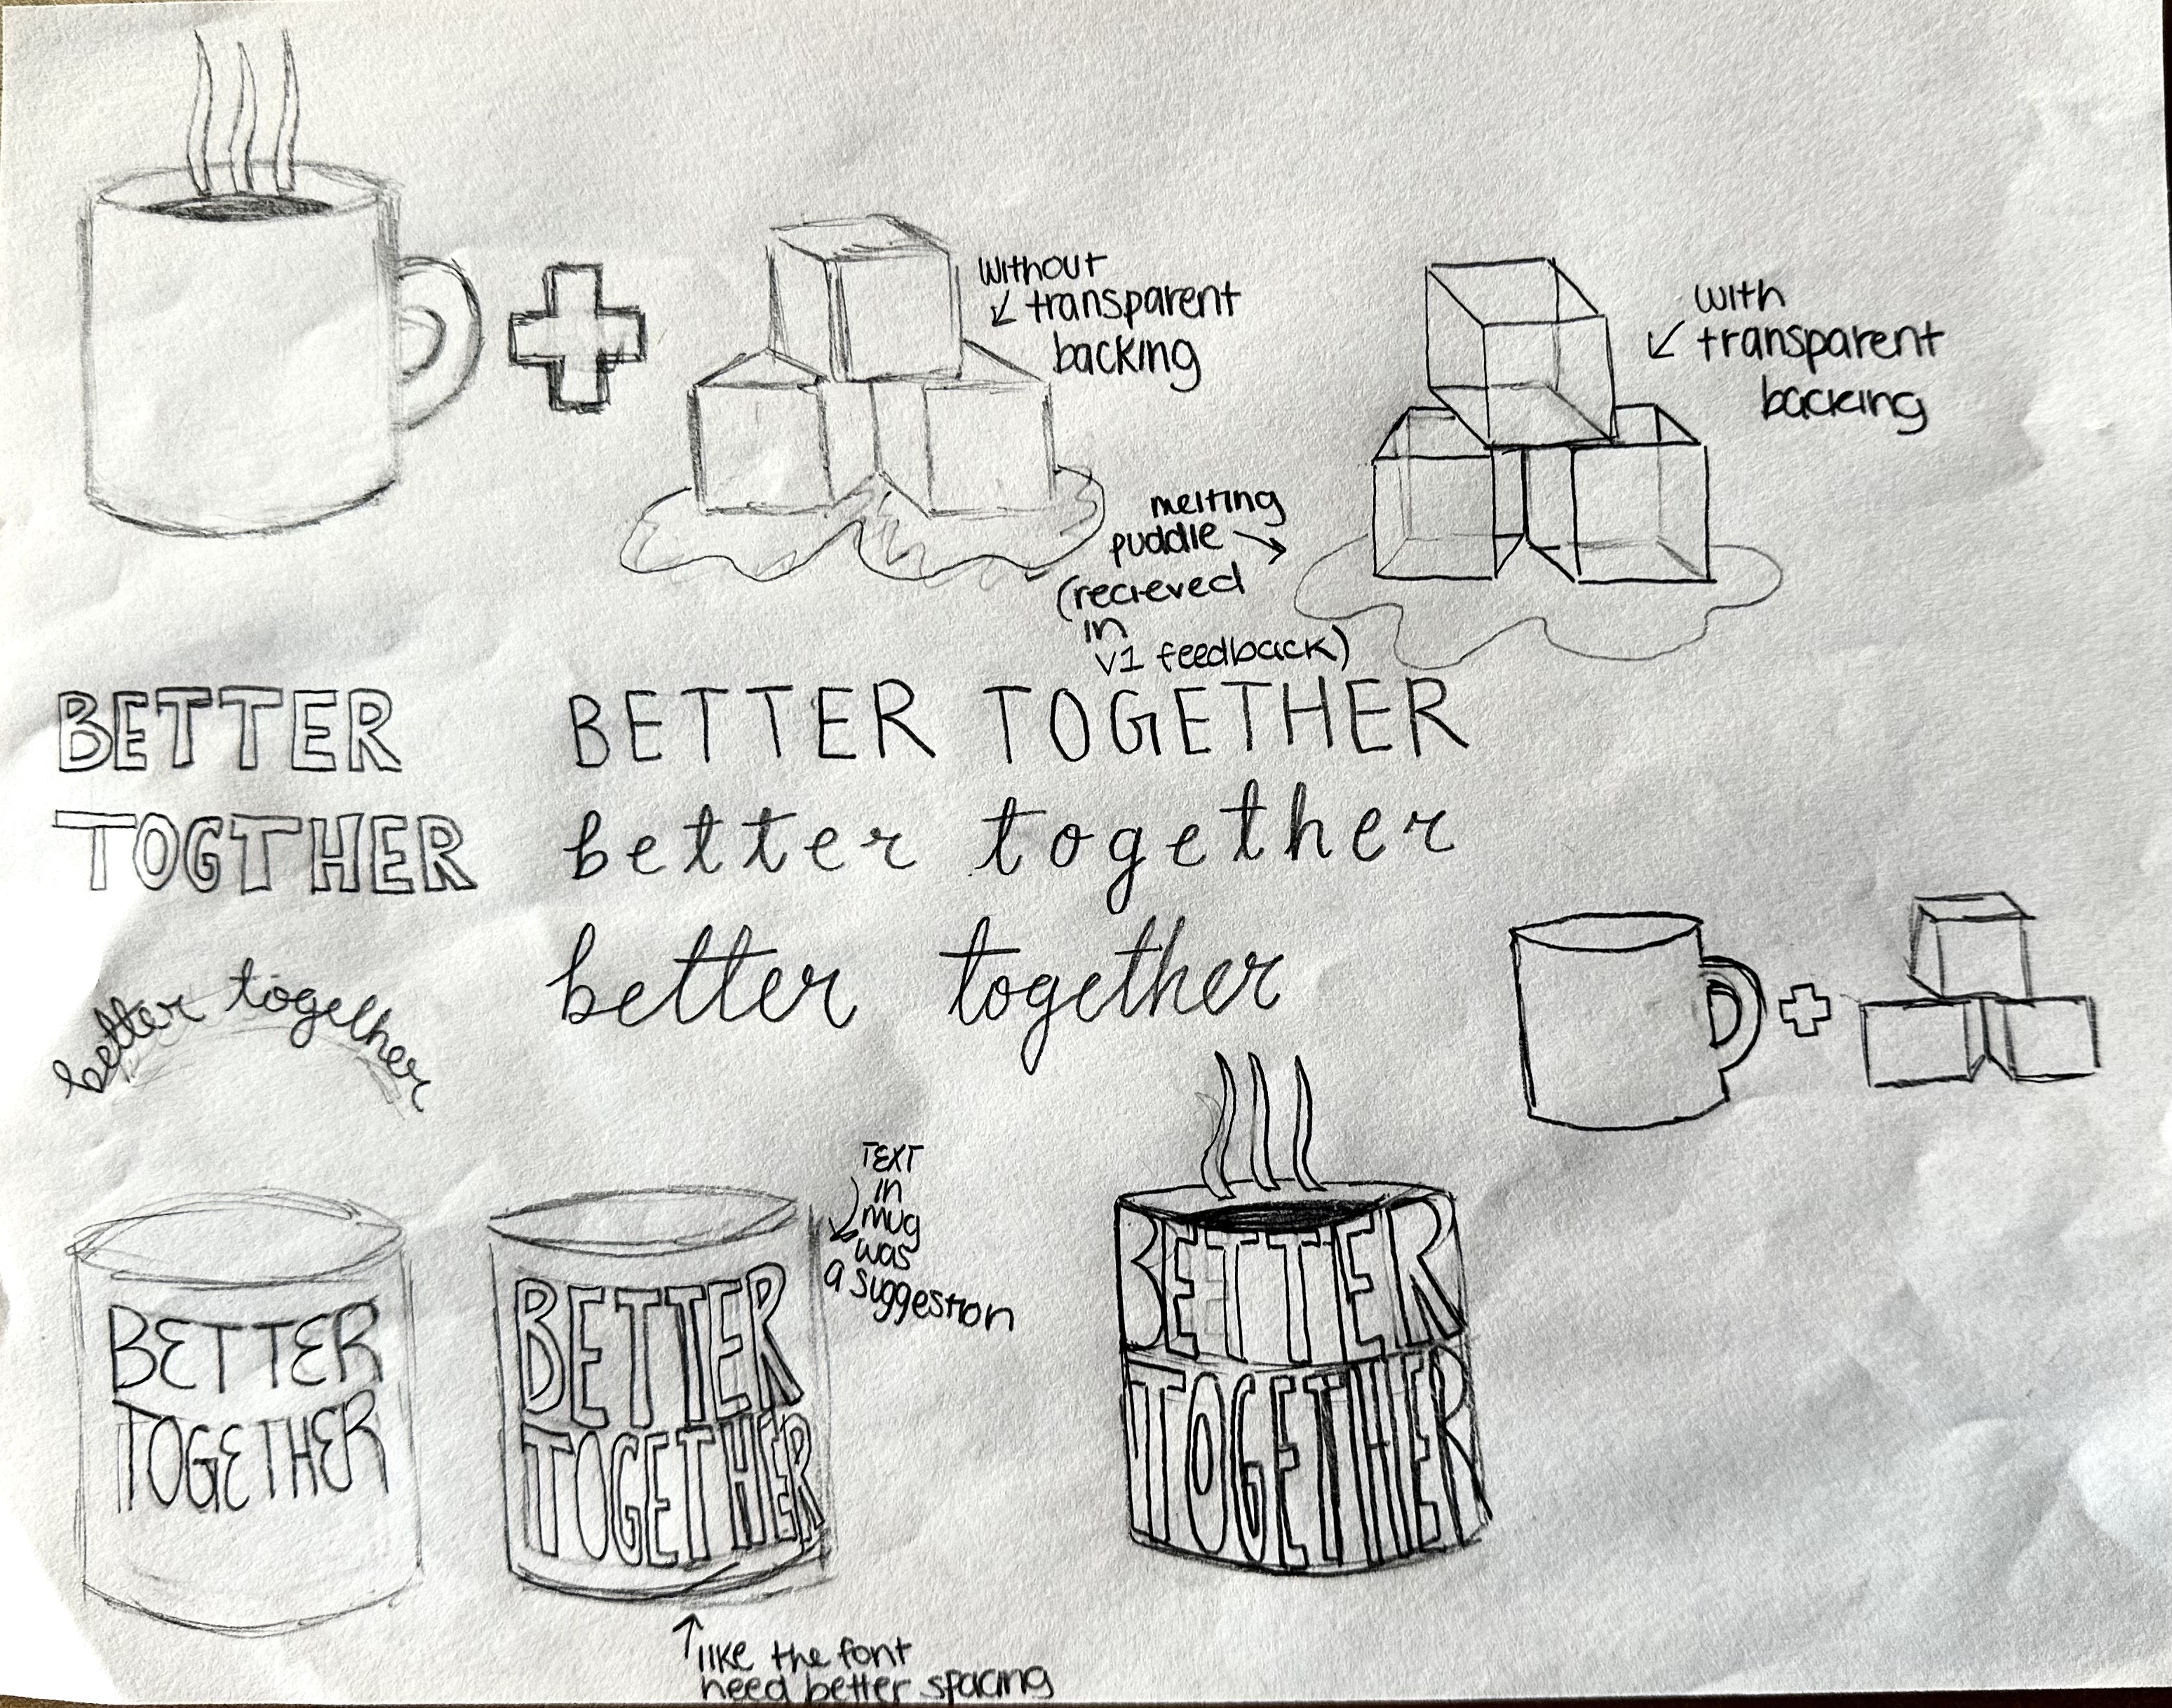 without
transparent
backing
with
transparent
backing
melting
puddle
(recieved
in
v1 feedback)
BETTER
TOGTHER
BETTER TOGETHER
better together
better together
better together
TEXT
in
mug
was
a suggestion
BETTER
TOGETHER
BETTER
TOGETHER
BETTER
TOGETHER
like the font
need better spacing